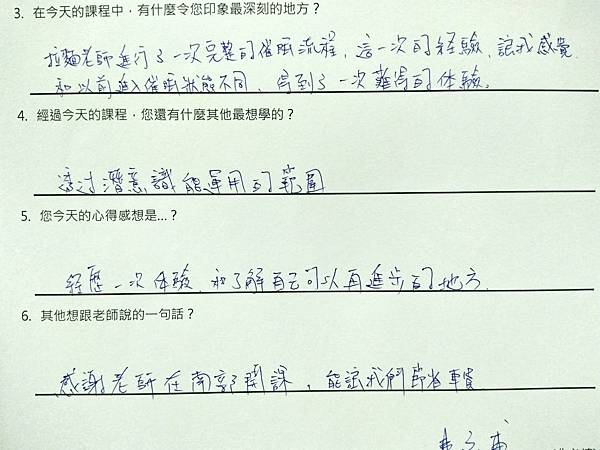 3. 在今天的課程中，有什麼令您印象最深刻的地方？
拉麵老師進行了一次完整的催眠流程，這一次的経驗，讓我感覺
和以前進入催眠狀態不同，得到了一次難得的体驗。
4. 經過今天的課程，您還有什麼其他最想學的？
透过潛意識能運用的範圍
5. 您今天的心得感想是...？
経歷一次体驗，和了解自己可以再進步的地方.
6. 其他想跟老師說的一句話？
感謝老師在南部開課，能讓我們節省車費